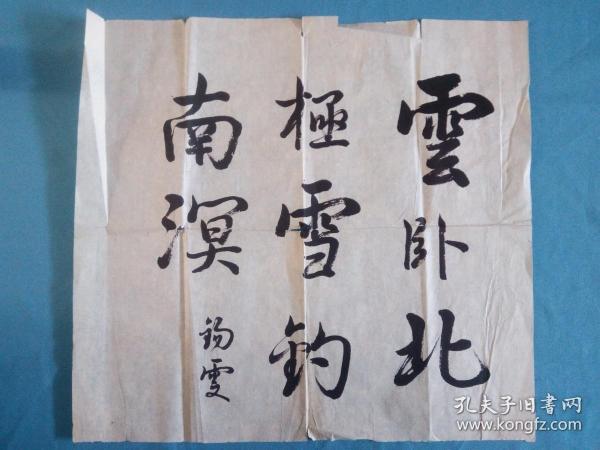 雲卧北
極雪釣
南溟
錫雯
孔夫子旧書网
www.kongfz.com